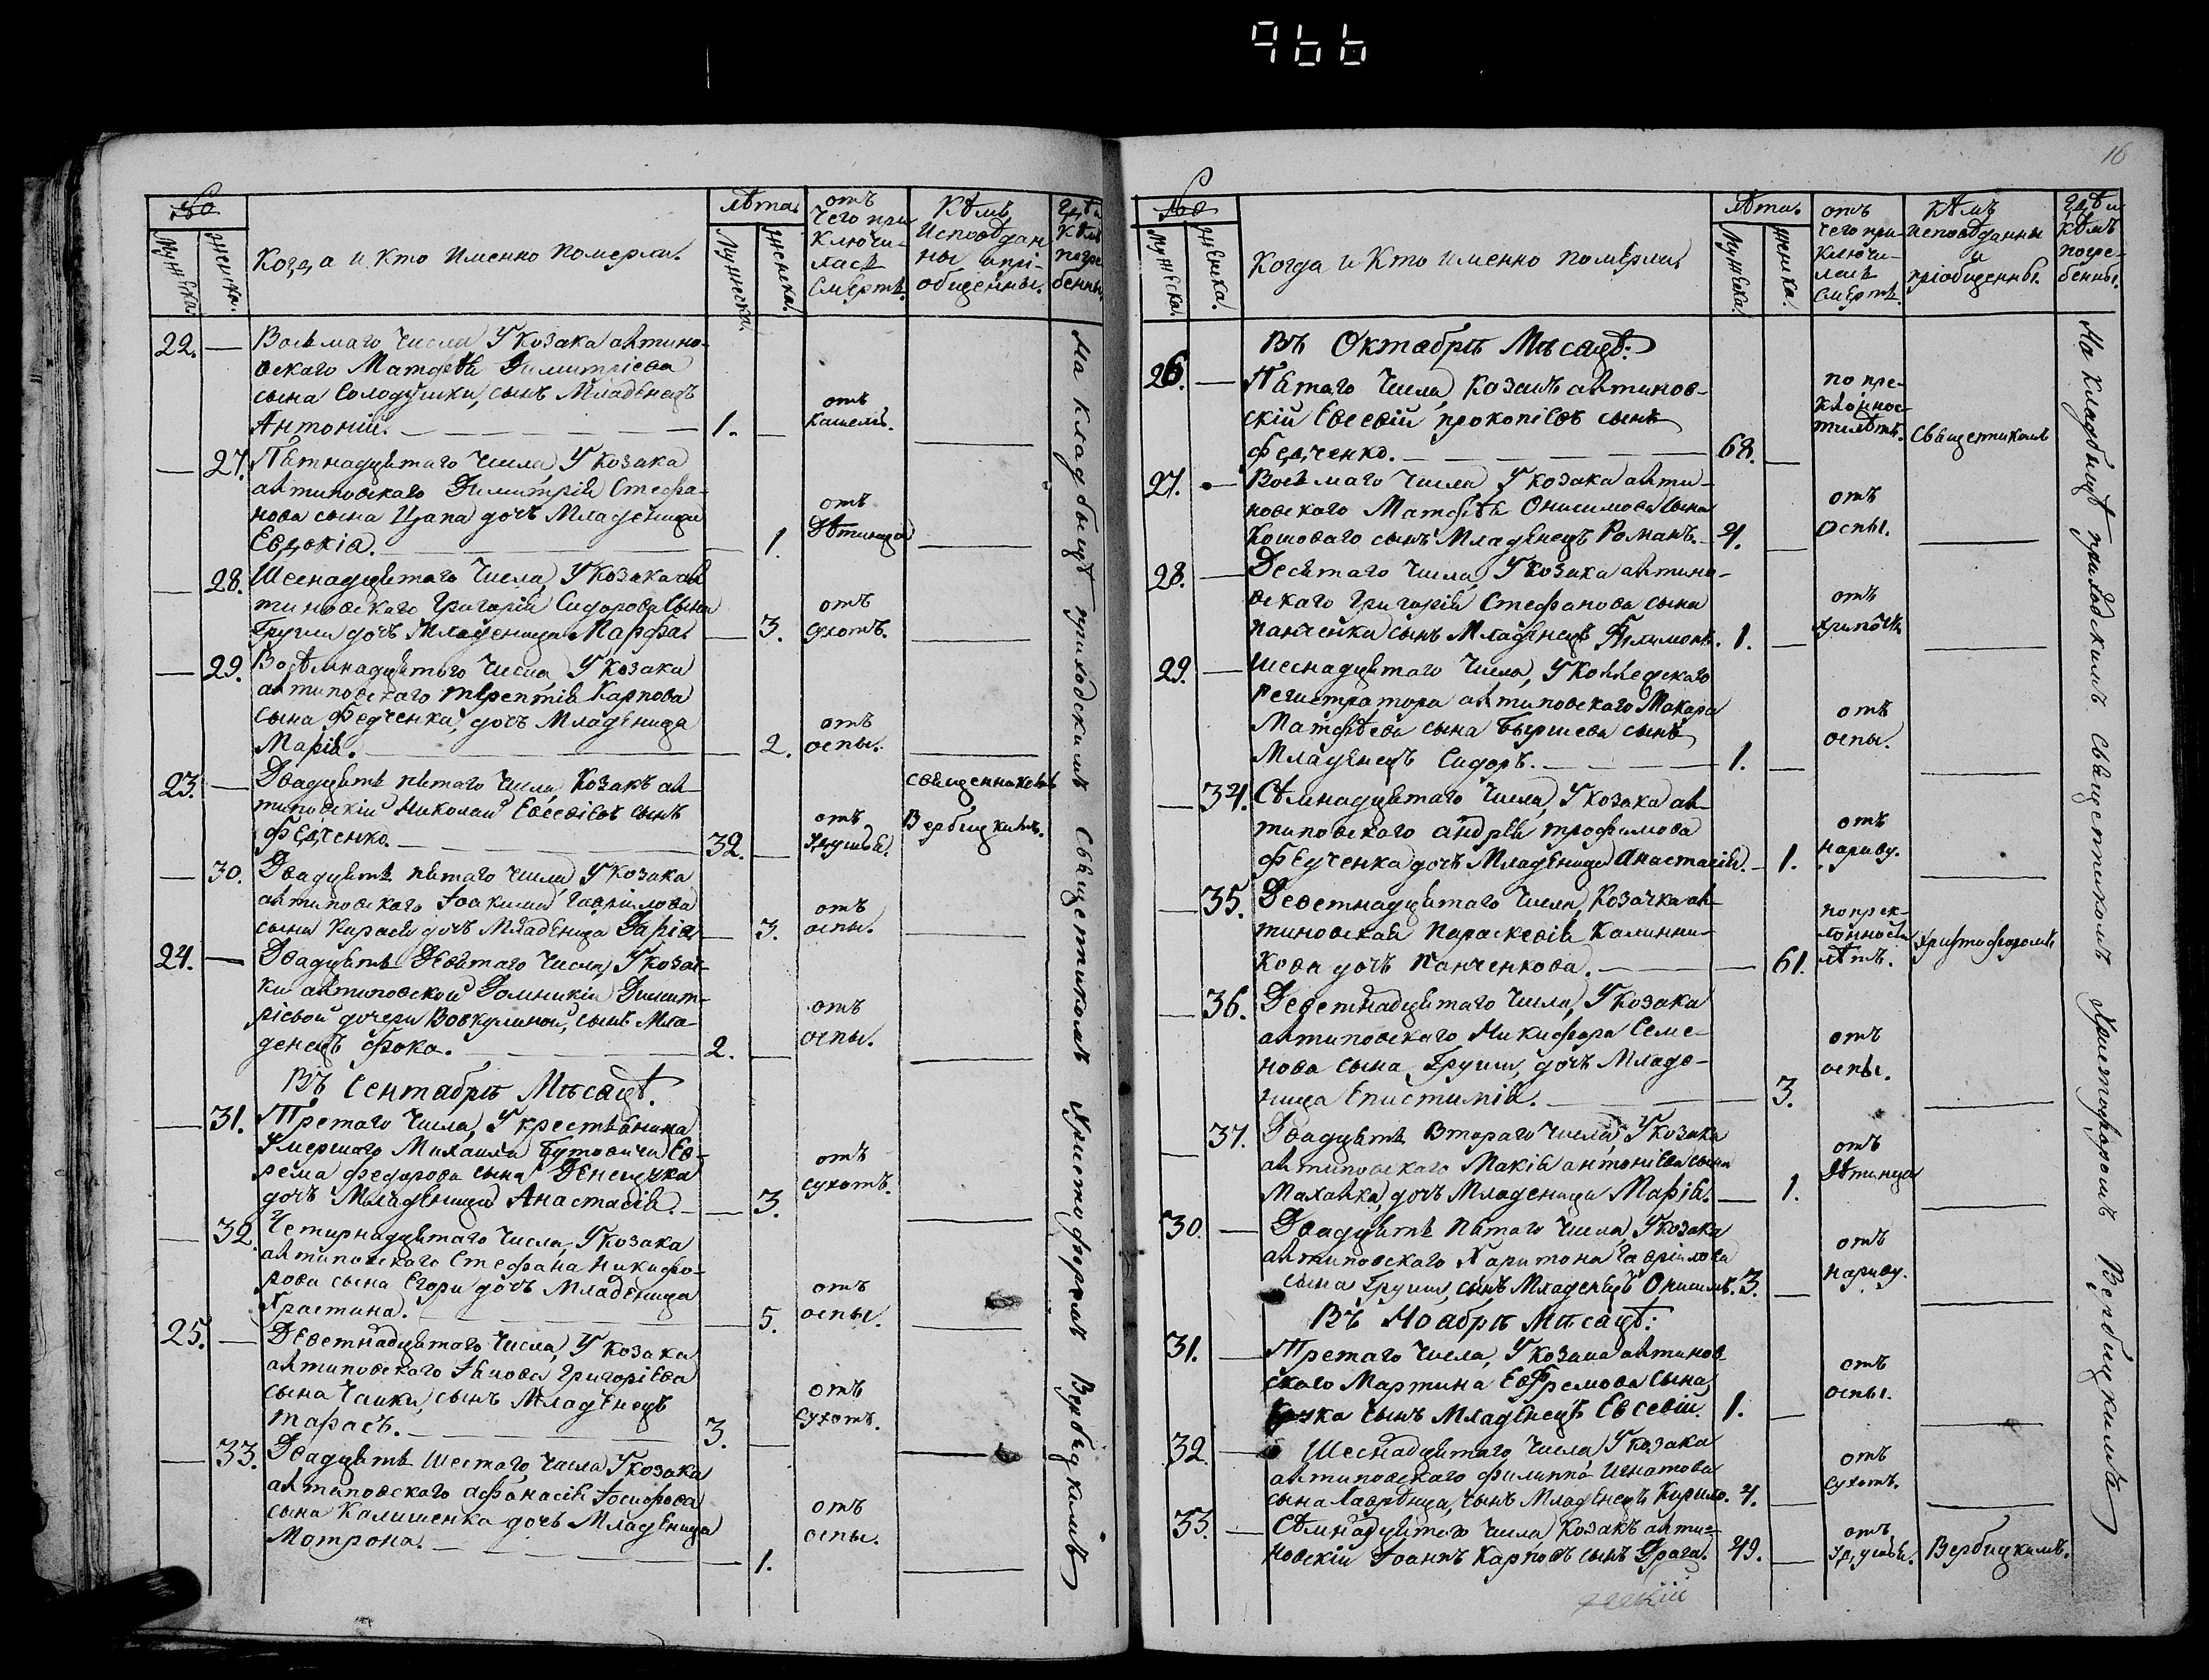 966
№
Мужеска.
женска.
Когда и Кто Именно Померли.
лѣта.
Мужеска.
женска.
отъ
чего при
ключи-
лась
смерть.
Кѣмъ
Исповѣдан
ны и прі-
общенны.
Гдѣ и
Кѣмъ
погре
бенны.
22. — Восмаго Числа У козака антипо-
вскаго Матфѣя Димитріева
сына Солодушки, сынъ Младенецъ
Антоній. — 1. — отъ кашелю.
— 27. Пятнадцятаго Числа, У козака
антиповскаго Димитрія Стефа-
нова сына Цапа дочь Младеница
Евдокія. — 1. отъ Дѣтинца
— 28. Шеснадцятаго Числа, У козака ан
типовскаго Григорія Сидорова сына
Груши дочь Младеница Марфа. — 3. отъ сухотъ.
— 29. Восѣмнадцятого Числа, У козака
антиповскаго терентія Карпова
сына Федченка, дочь Младеница
Марія. — 2. отъ оспы.
23. — Двадцять пятаго числа, Козакъ ан
типовскій Николай Евсевіевъ сынъ
Федченко. — 32. — отъ удушья. священникомъ Вербицкимъ.
— 30. Двадцять пятаго числа, У козака
антиповскаго Іоакима Гавріилова
сына Карася дочь Младеница Дарія — 3. отъ оспы.
24. — Двадцять Девятаго Числа, У козач-
ки антиповской Домникіи Димит-
ріевой дочери Вовкулиной, сынъ Мла-
денецъ Фока. — 2. — отъ оспы.
Въ Сентябрѣ Мѣсяцѣ.
— 31. Третаго Числа, У крестянина
умершаго Михаила Бутовича Ев-
рема Федорова сына Денещука
дочь Младеница Анастасія. — 3. отъ сухотъ.
— 32. Четырнадцятаго Числа, У козака
антиповскаго Стефана Никифо-
рова сына Егори дочь Младеница
Христина. — 5. отъ оспы.
25. — Деветнадцятаго Числа, У козака
антиповскаго Іякова Григоріева
сына Чайки, сынъ Младенецъ
тарасъ. — 3. — отъ Сухотъ.
— 33. Двадцять Шестаго Числа, У козака
антиповскаго Афонасія Іосифова
сына Калишенка дочь Младеница
Мотрона. — 1. отъ оспы.
На кладбыщѣ приходскимъ Священникомъ Христофоромъ Вербицкимъ
16
№
Мужеска.
женска.
Когда и Кто именно померли.
лѣта.
Мужеска.
женска.
отъ
чего при-
ключи-
лась
смерть.
Кѣмъ
исповѣданны
и
пріобщенны.
Гдѣ и
Кѣмъ
погре-
бенны.
Въ Октябрѣ Мѣсяцѣ:
26. — Пятаго Числа, Козакъ антипов-
скій Евсевій Прокопіевъ сынъ
Федченко. — 68. — по пре-клонности лѣтъ. Священникомъ
27. — Восмаго Числа, У козака анти-
повскаго Матфѣя Онисимова сына
Кошоваго сынъ Младенецъ Романъ. 4. — отъ Оспы.
28. — Десятаго Числа, У козака антипо-
вскаго Григорія Стефанова сына
Панченка сынъ Младенецъ Филимонъ. 1. — отъ
29. — Шеснадцятаго Числа, У Коллежскаго
Регистратора антиповскаго Макара
Матфѣева сына сынъ
Младенецъ Сидоръ. — 1. — отъ оспы.
— 34. Сѣмнадцятаго Числа, У козака ан-
типовскаго Андрѣя трофимова
Федченка дочь Младеница Анастасія. — 1. отъ нариву.
— 35. Деветнадцятаго Числа, Козачка ан-
типовская Параскевія Калинни-
кова дочь Панченкова. — 61. по прек-лонности лѣтъ. Христофоромъ
— 36. Деветнадцятаго Числа, У козака
антиповскаго Никифора Семе-
нова сына Груши, дочь Младе-
ница Епистимія. — 3. отъ оспы.
— 37. Двадцять Втораго Числа, У козака
антиповскаго Макія Антоніева сына
Маханка, дочь Младеница Марія. — 1. отъ Дѣтинца
30. — Двадцять Пятаго Числа, У козака
антиповскаго Харитона Гавріилова
сына Груши, сынъ Младенецъ Онисимъ. 3. — отъ Нариву.
Въ Ноябрѣ Мѣсяцѣ:
31. — Третаго Числа, У козака антипов
скаго Мартина Евфремова сына
сынъ Младенецъ Евсевій. 1. — отъ оспы.
32. — Шеснадцятаго Числа, У козака
антиповскаго Филиппа Игнатова
сына Лавренца, сынъ Младенецъ Кирило. 4. — отъ Сухотъ.
33. — Сѣмнадцятаго Числа, Козакъ анти-
повскій Іоаннъ Карповъ сынъ Драга. 49. — отъ Удушья. Вербицкимъ.
На кладбыщѣ приходскимъ Священникомъ Христофоромъ Вербицкимъ